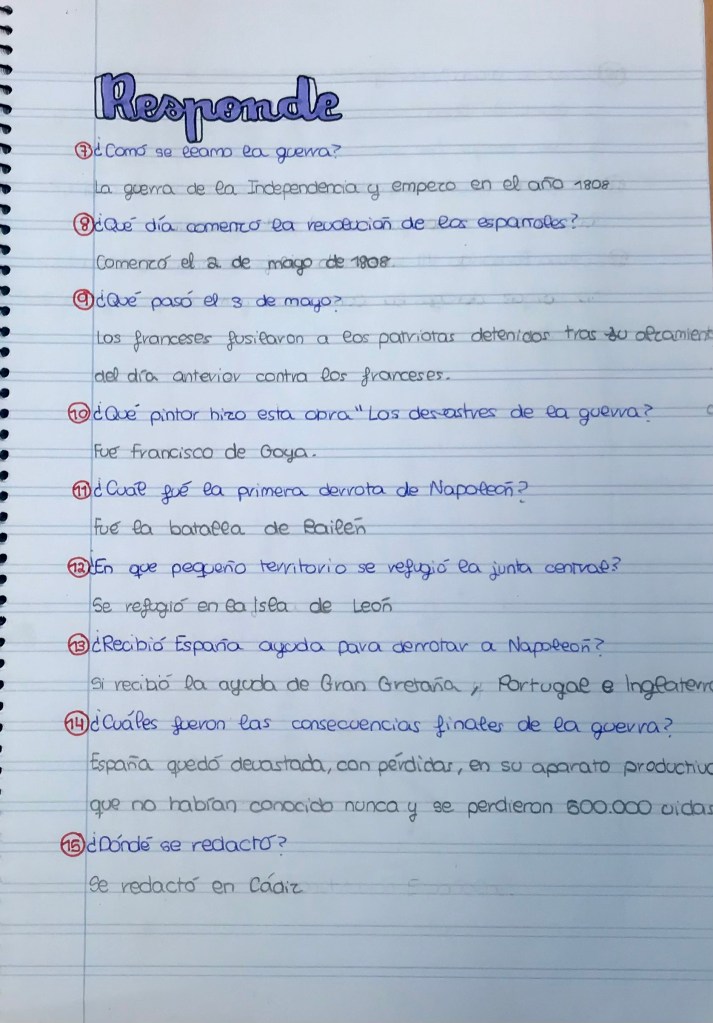 Responde
7 ¿Como se llamo la guerra?
La guerra de la Independencia y empezo en el año 1808
8 ¿Qué día comenzó la revolución de los españoles?
Comenzó el 2 de mayo de 1808.
9 ¿Qué pasó el 3 de mayo?
Los franceses fusilaron a los patriotas detenidos tras su alzamient
del día anterior contra los franceses.
10 ¿Qué pintor hizo esta obra "Los desastres de la guerra?
Fue Francisco de Goya.
11 ¿Cual fué la primera derrota de Napoleón?
Fué la batalla de Bailén
12 ¿En que pequeño territorio se refugió la junta central?
Se refugió en la Isla de León
13 ¿Recibió España ayuda para derrotar a Napoleón?
Si recibió la ayuda de Gran Gretaña, Portugal e Inglaterr
14 ¿Cuáles fueron las consecuencias finales de la guerra?
España quedó devastada, con pérdidas, en su aparato productivo
que no habían conocido nunca y se perdieron 500.000 vidas
15 ¿Dónde se redactó?
Se redactó en Cádiz